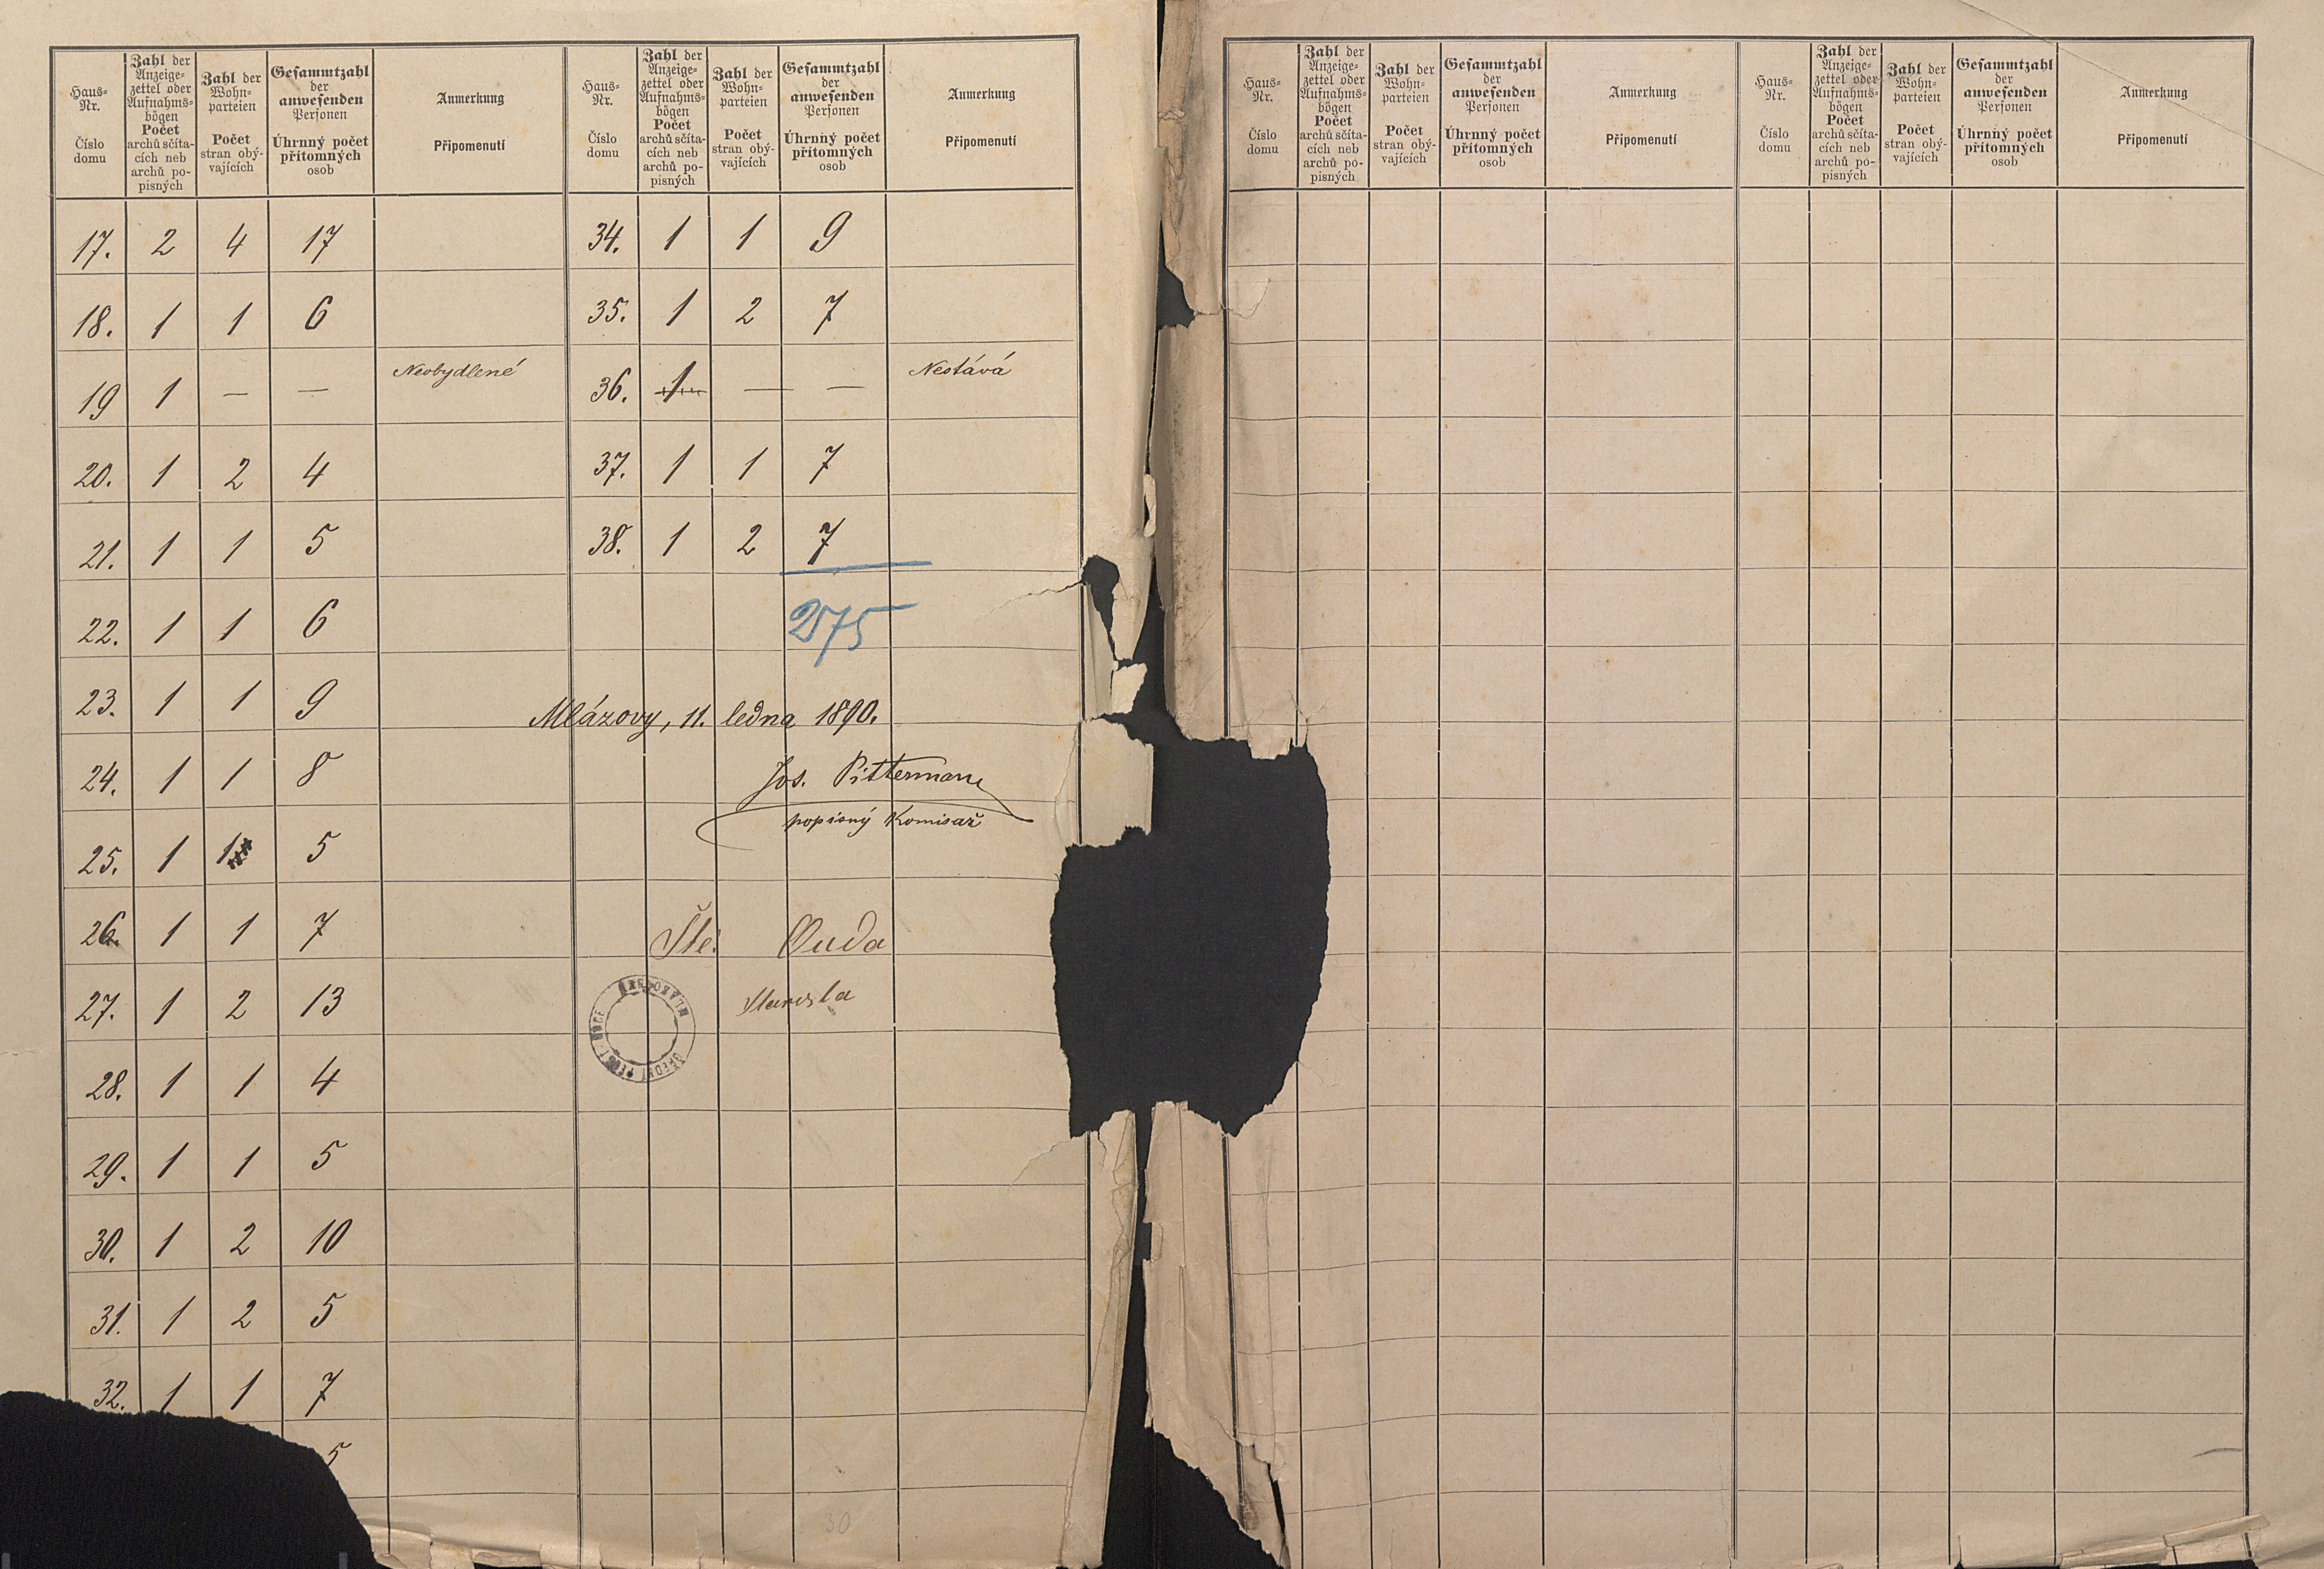 Haus-Nr. Číslo domu
Zahl der Anzeige-zettel oder Aufnahms-bögen Počet archů sčíta-cích neb archů po-pisných
Zahl der Wohn-parteien Počet stran obý-vajících
Gesammtzahl der anwesenden Personen Úhrnný počet přítomných osob
Anmerkung Připomenutí
17. 2 4 17
18. 1 1 6
19 1 — — Neobydlené
20. 1 2 4
21. 1 1 5
22. 1 1 6
23. 1 1 9
24. 1 1 8
25. 1 1 5
26. 1 1 7
27. 1 2 13
28. 1 1 4
29. 1 1 5
30. 1 2 10
31. 1 2 5
32. 1 1 7
5
Haus-Nr. Číslo domu
Zahl der Anzeige-zettel oder Aufnahms-bögen Počet archů sčíta-cích neb archů po-pisných
Zahl der Wohn-parteien Počet stran obý-vajících
Gesammtzahl der anwesenden Personen Úhrnný počet přítomných osob
Anmerkung Připomenutí
34. 1 1 9
35. 1 2 7
36. 1 — — Nestává
37. 1 1 7
38. 1 2 7
275
Mlázovy, 11. ledna 1890.
Jos. Pittermann
popisný komisař
Ouda
Starosta
30
Haus-Nr. Číslo domu
Zahl der Anzeige-zettel oder Aufnahms-bögen Počet archů sčíta-cích neb archů po-pisných
Zahl der Wohn-parteien Počet stran obý-vajících
Gesammtzahl der anwesenden Personen Úhrnný počet přítomných osob
Anmerkung Připomenutí
Haus-Nr. Číslo domu
Zahl der Anzeige-zettel oder Aufnahms-bögen Počet archů sčíta-cích neb archů po-pisných
Zahl der Wohn-parteien Počet stran obý-vajících
Gesammtzahl der anwesenden Personen Úhrnný počet přítomných osob
Anmerkung Připomenutí